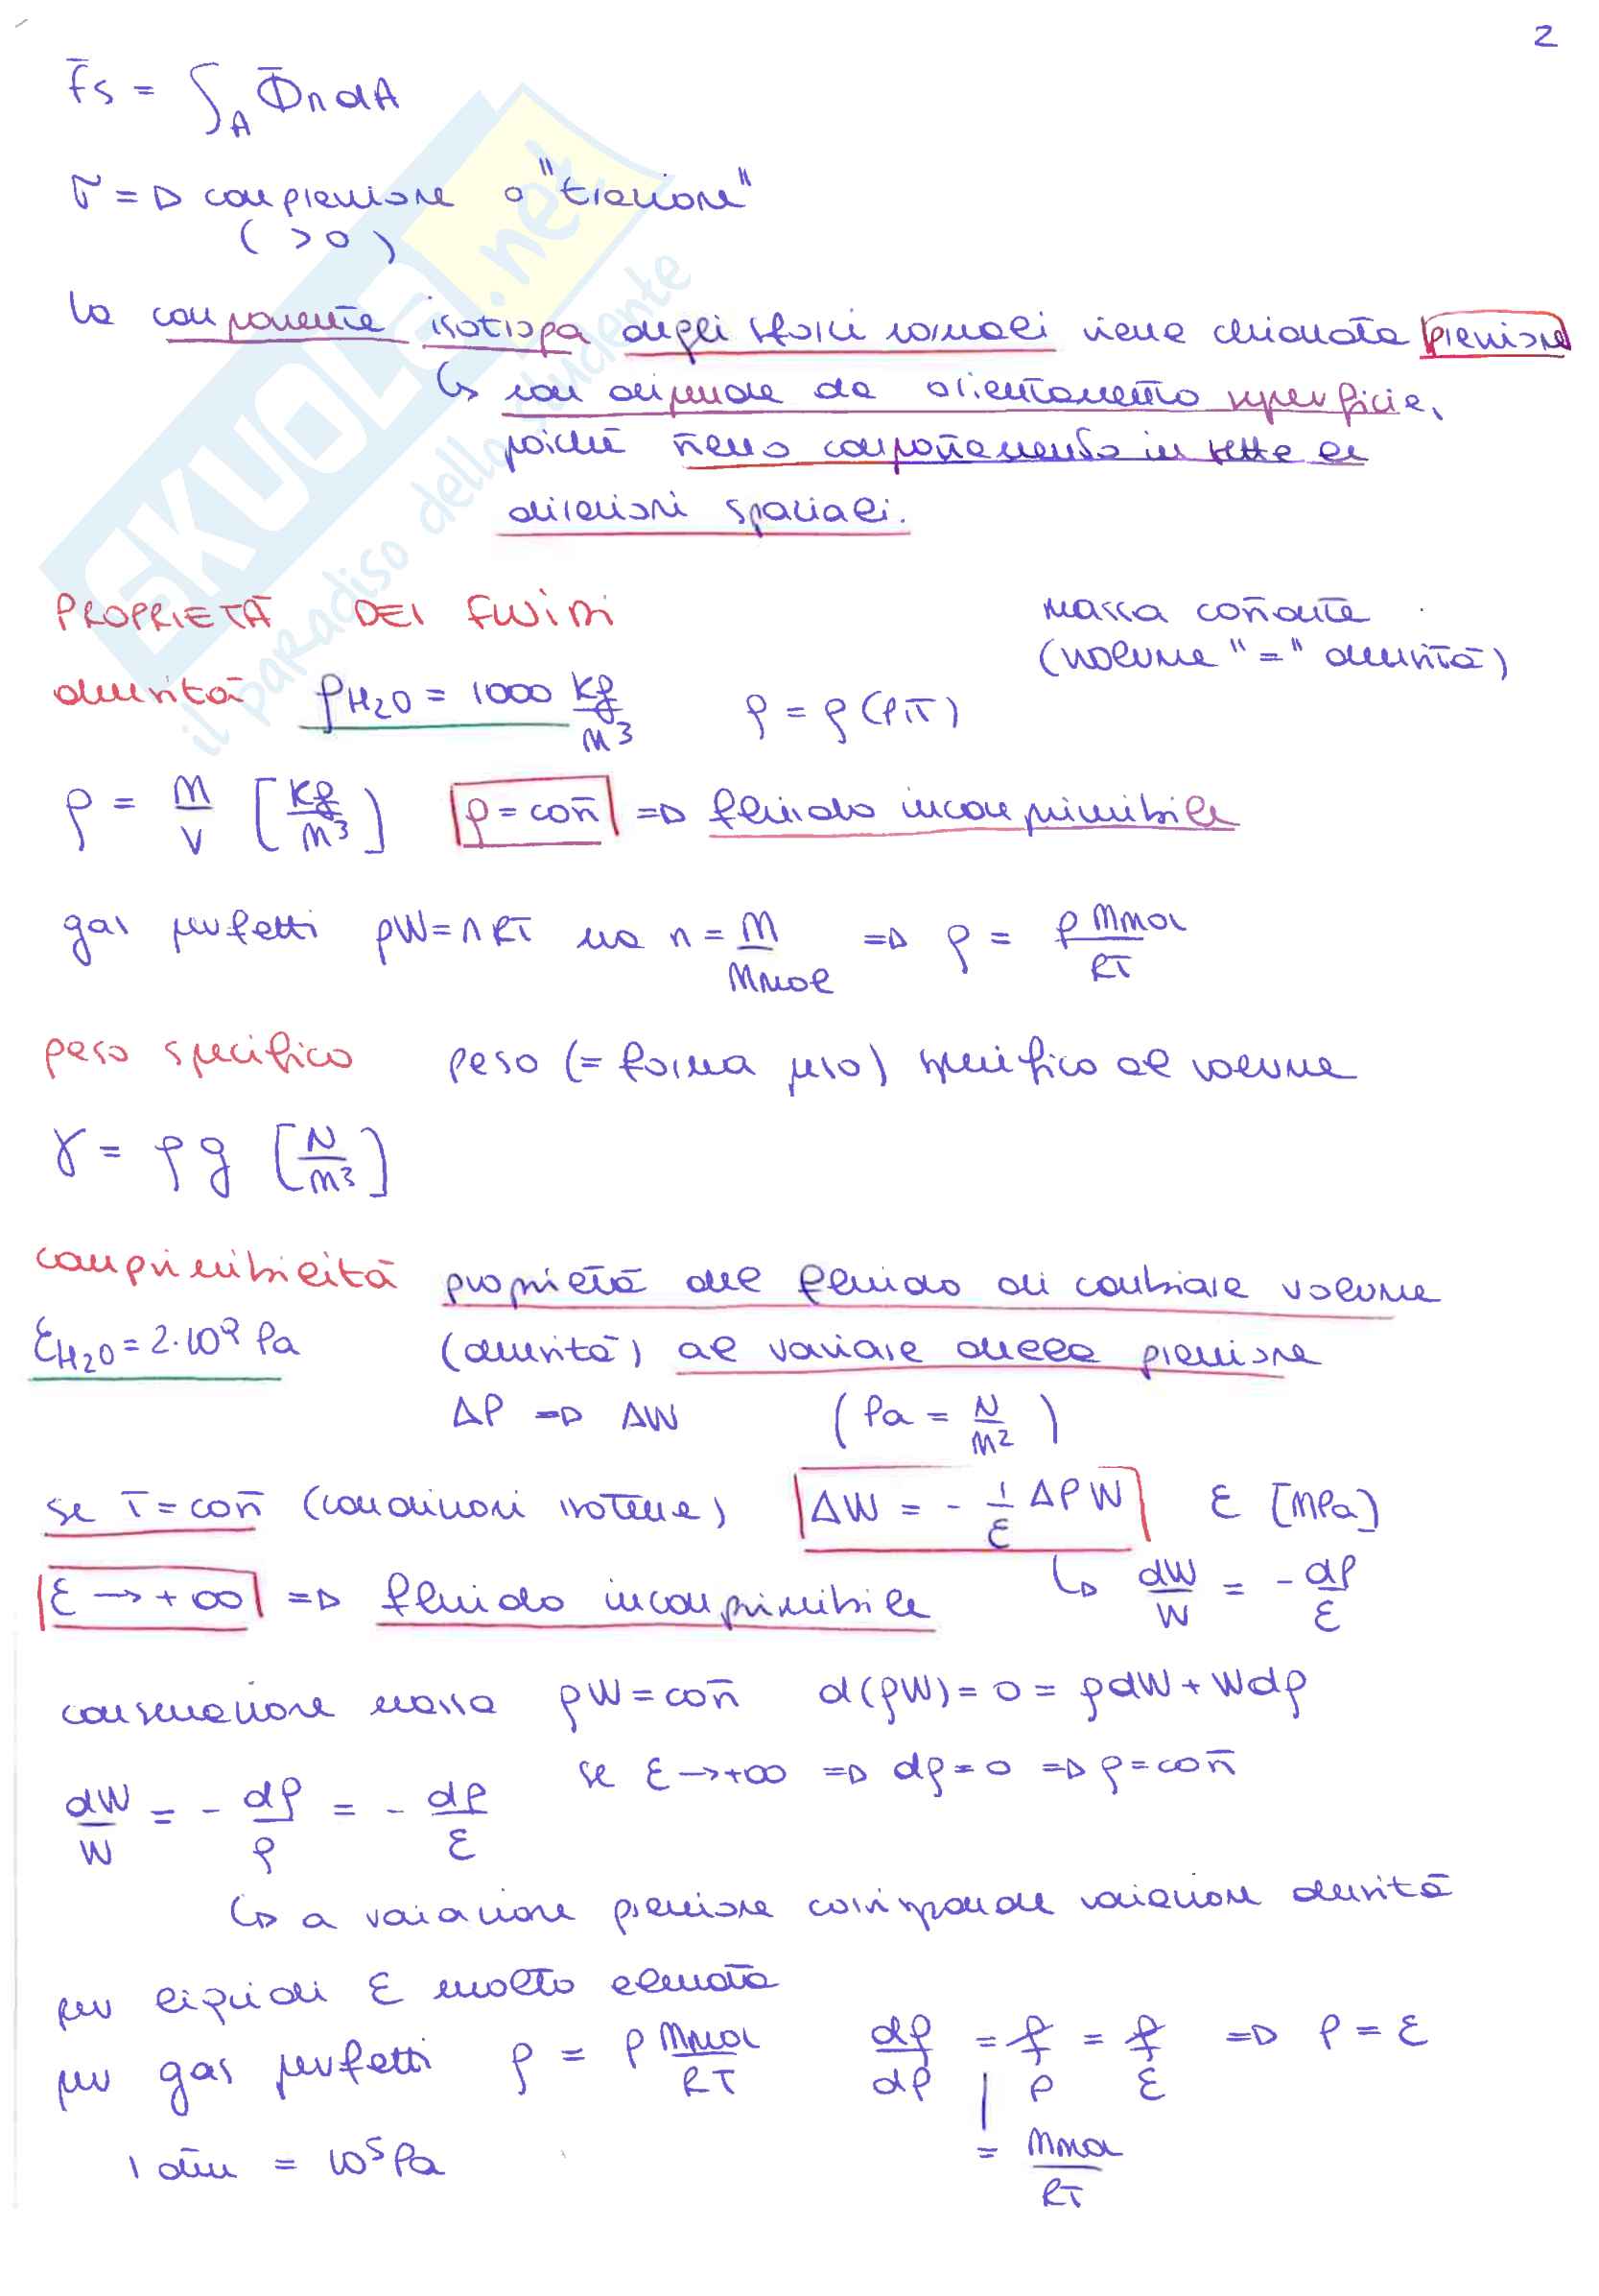 2
F̄s = ∫_A Φ̄n dA
σ => compressione o "trazione"
(>0)
la componente isotropa degli sforzi normali viene chiamata pressione
↳ non dipende da orientamento superficie,
poiché stesso comportamento in tutte le
direzioni spaziali.
PROPRIETÀ DEI FLUIDI
massa costante
(volume "=" densità)
densità ρH2O = 1000 kg/m³ ρ = ρ(p,T)
ρ = M/V [kg/m³] ρ = cost => fluido incomprimibile
gas perfetti pW = nRT ma n = M/Mmol => ρ = p Mmol/RT
peso specifico peso (= forza peso) specifico al volume
γ = ρg [N/m³]
comprimibilità proprietà del fluido di cambiare volume
εH2O = 2·10⁹ Pa (densità) al variare della pressione
ΔP => ΔW (Pa = N/m²)
se T = cost (condizioni isoterme) ΔW = - 1/ε ΔP W ε [MPa]
ε → +∞ => fluido incomprimibile ↳ dW/W = - dp/ε
conservazione massa ρW = cost d(ρW) = 0 = ρdW + Wdρ
se ε → +∞ => dρ = 0 => ρ = cost
dW/W = - dρ/ρ = - dp/ε
↳ a variazione pressione corrisponde variazione densità
per liquidi ε molto elevata
per gas perfetti ρ = p Mmol/RT dρ/dp = ρ/p = ρ/ε => p = ε
= Mmol/RT
1 atm = 10⁵ Pa
SKUOLA.net
il paradiso dello studente